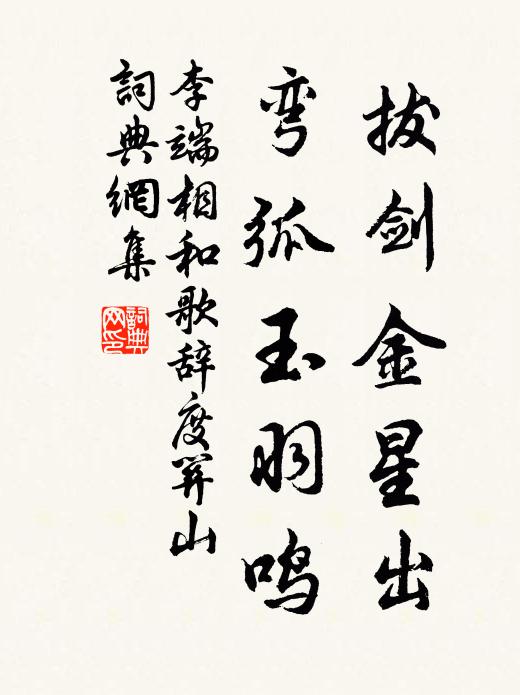 拔剑金星出
弯弧玉羽鸣
李端相和歌辞度关山
詞典網集
詞典网印